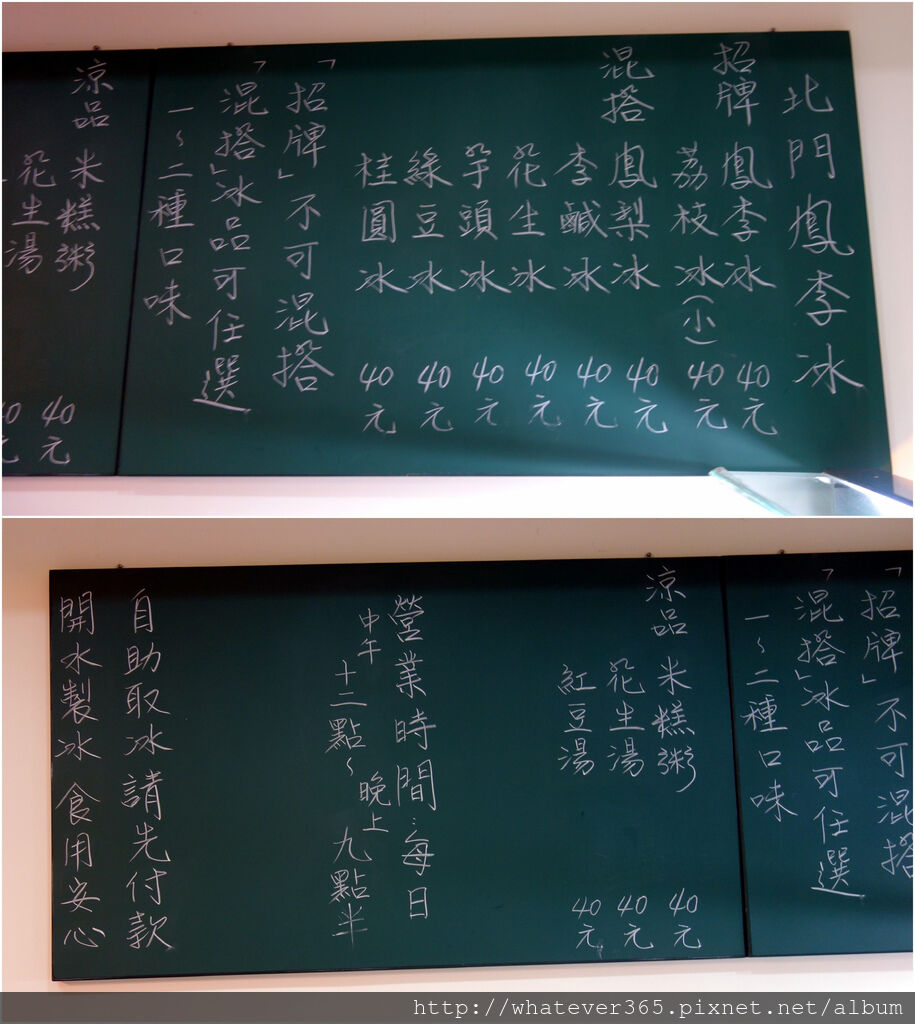 北門鳳李冰
招牌 鳳李冰 40元
荔枝冰(小) 40元
混搭 鳳梨冰 40元
李鹹冰 40元
花生冰 40元
芋頭冰 40元
綠豆冰 40元
桂圓冰 40元
「招牌」不可混搭
「混搭」冰品可任選
一~二種口味
涼品 米糕粥 40元
花生湯 40元
「招牌」不可混搭
「混搭」冰品可任選
一~二種口味
涼品 米糕粥 40元
花生湯 40元
紅豆湯 40元
營業時間:每日
中午十二點~晚上九點半
自助取冰請先付款
開水製冰 食用安心
http://whatever365.pixnet.net/album